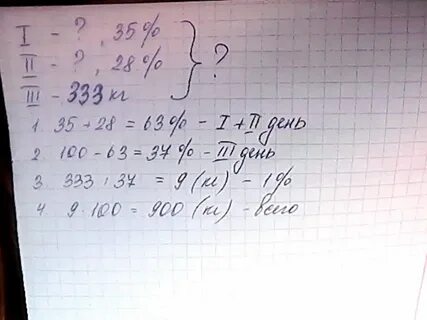 I - ?, 35%
II - ?, 28% } ?
III - 333 кг
1. 35 + 28 = 63% - I + II день
2. 100 - 63 = 37% - III день
3. 333 : 37 = 9 (кг) - 1%
4. 9 · 100 = 900 (кг) - всего